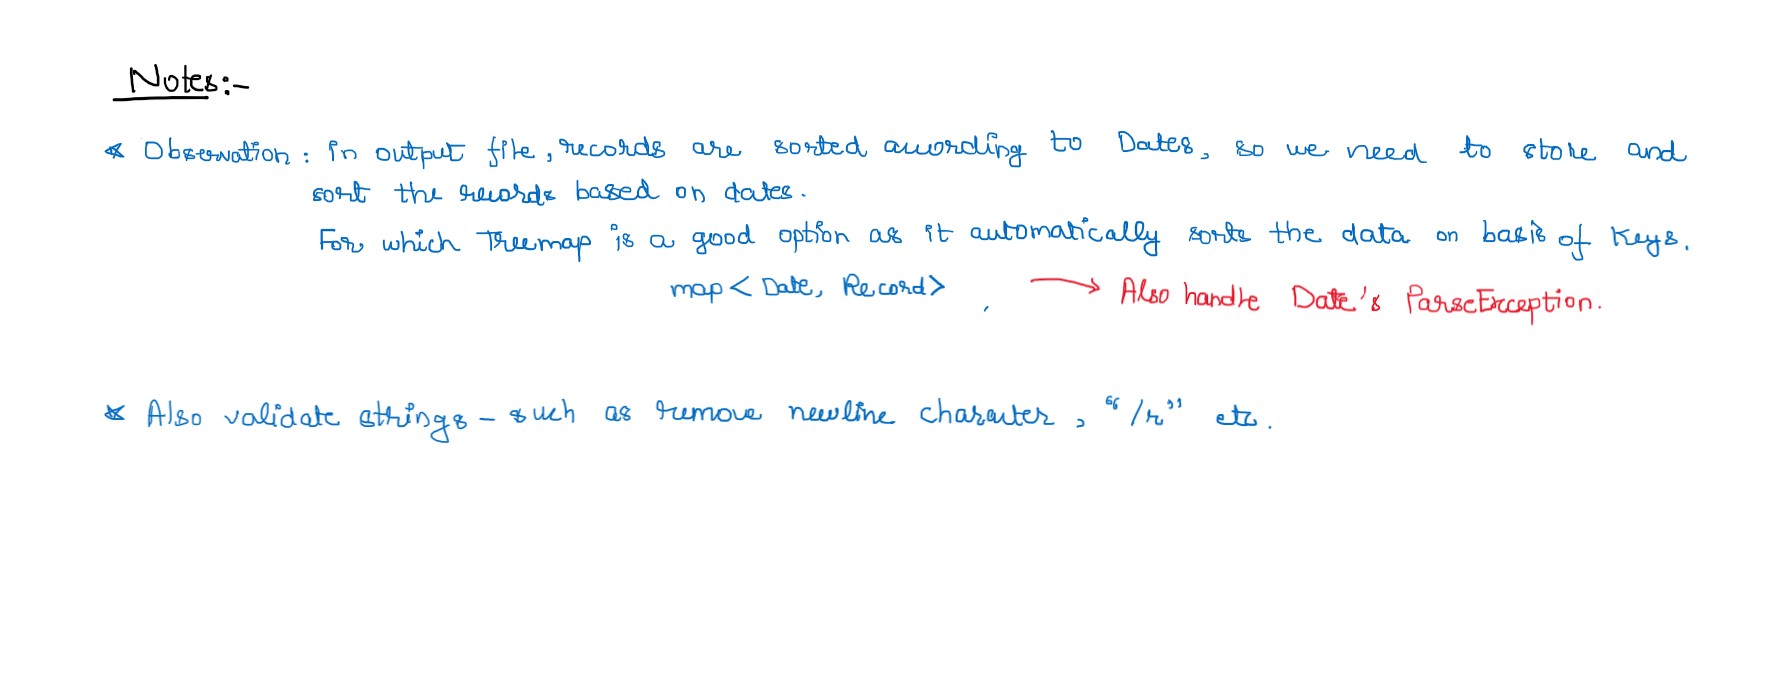 Notes:-
* Observation : in output file, records are sorted according to Dates, so we need to store and
sort the records based on dates.
For which Treemap is a good option as it automatically sorts the data on basis of Keys.
map < Date, Record >
→ Also handle Date's ParseException.
* Also validate strings - such as remove newline character, "/r" etc.